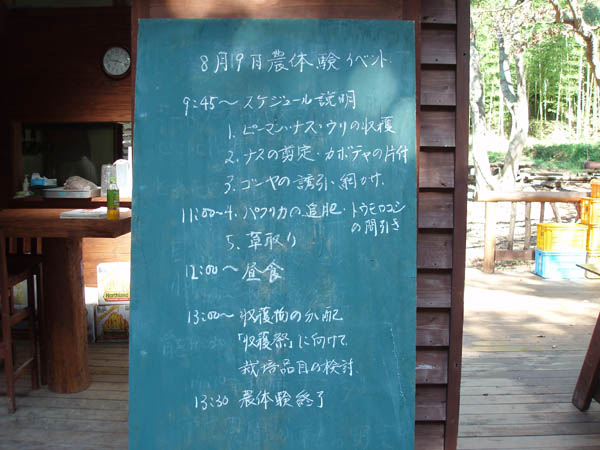 8月9日農体験イベント
9:45〜スケジュール説明
1. ピーマン・ナス・ウリの収穫
2. ナスの剪定・カボチャの片付
3. ゴーヤの誘引・網かけ
11:00〜4. パプリカの追肥・トウモロコシの間引き
5. 草取り
12:00〜 昼食
13:00〜 収穫物の分配
「収穫祭」に向けて
栽培品目の検討
13:30 農体験終了